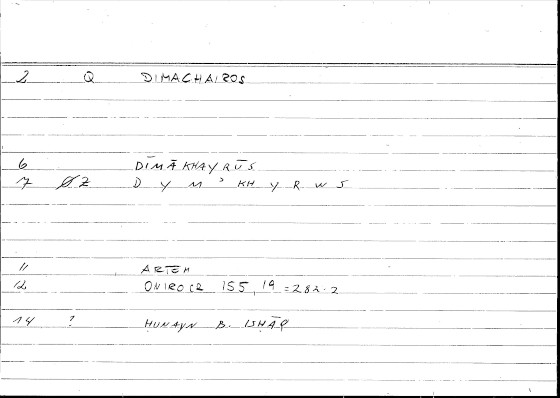 2 Q DIMACHAIROS
6 DĪMĀKHAYRŪS
7 Ø Z D Y M ʾ KH Y R W S
11 ARTEM
12 ONIROCR 155, 19 = 282.2
14 ? HUNAYN B. ISHĀQ